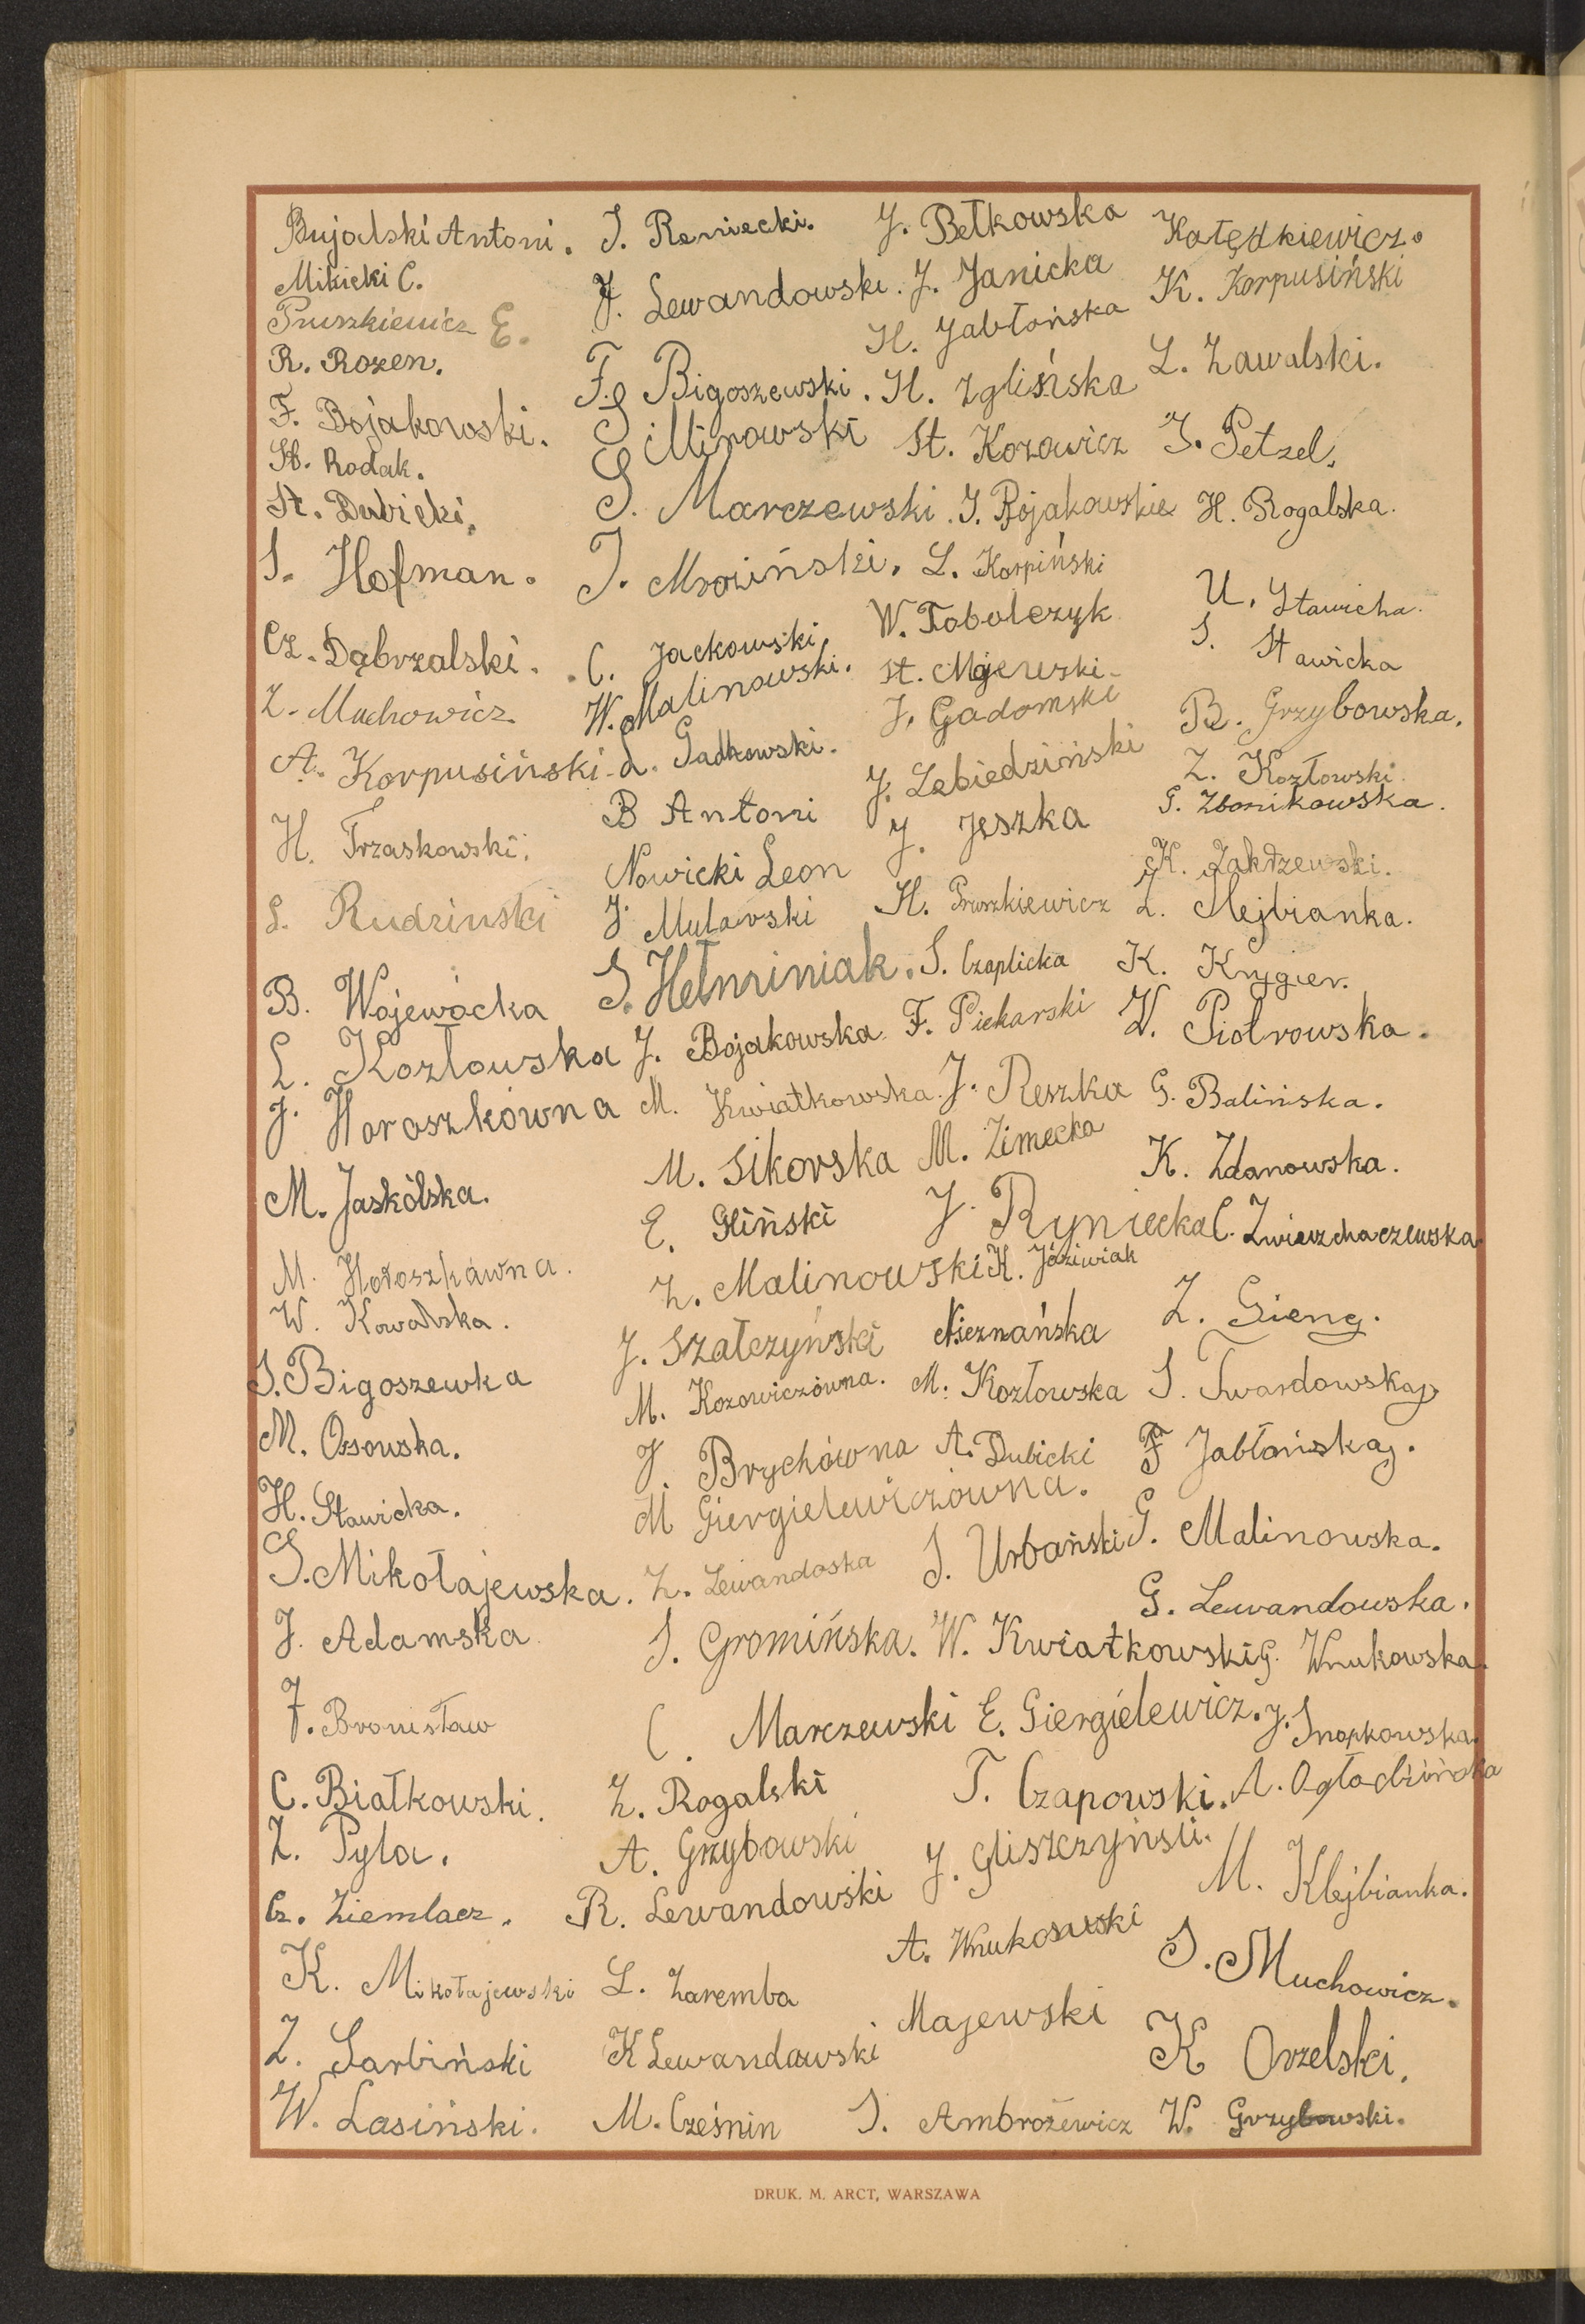 Bujalski Antoni.
Milicki C.
Pruszkiewicz E.
R. Rozen.
F. Bojakowski.
St. Rodak.
St. Dubicki.
S. Hofman.
Cz. Dąbrzalski.
Z. Muchowicz
A. Korpusiński
H. Trzaskowski.
S. Rudzinski
B. Wojewócka
L. Kozłowska
J. Horoszkówna
M. Jaskólska.
M. Hołoszkówna.
W. Kowalska.
S. Bigoszewka
M. Ossowska.
H. Stawicka.
S. Mikołajewska.
J. Adamska
F. Bronisław
C. Białkowski.
Z. Pyla.
Cz. Ziemlacz.
K. Mikołajewski
Z. Sarbiński
W. Lasiński.
J. Reniecki.
J. Lewandowski.
F. Bigoszewski.
S. Mirowski
S. Marczewski.
J. Mroziński.
C. Jackowski.
W. Malinowski.
L. Gadkowski.
B Antoni
Nowicki Leon
J. Mularski
S. Hełminiak.
J. Bojakowska
M. Kwiatkowska.
M. Sikorska
E. Gliński
Z. Malinowski
J. Szałczyński
M. Kozowiczówna.
J. Brychówna
M Giergielewiczówna.
Z. Lewandoska
S. Gromińska.
C. Marczewski
Z. Rogalski
A. Grzybowski
R. Lewandowski
L. Zaremba
K Lewandawski
M. Cześnin
J. Bełkowska
J. Janicka
H. Jabłońska
H. Zglińska
St. Kozowicz
J. Bojakowskie
L. Karpiński
W. Tobolczyk
St. Majewski.
J. Gadomski
J. Lebiedziński
J. Jeszka
H. Pruszkiewicz
S. Czaplicka
F. Piekarski
J. Reszka
M. Zimecka
J. Ryniecka
K. Jóźwiak
Nieznańska
M. Kozłowska
A. Dubicki
S. Urbański
W. Kwiatkowski
E. Giergielewicz.
T. Czapowski.
J. Gliszczyński.
A. Wnukowski
Majewski
S. Ambrożewicz
Kołędkiewicz.
K. Korpusiński
L. Zawalski.
J. Petzel.
H. Rogalska.
U. Stawicha.
S. Stawicka
B. Grzybowska.
Z. Kozłowski.
G. Zbonikowska.
K. Zakrzewski.
Z. Klejbianka.
K. Krygier.
W. Piotrowska.
G. Balińska.
K. Zdanowska.
C. Zwierzchaczewska
Z. Gieng.
S. Twardowska
F Jabłońska.
G. Malinowska.
G. Lewandowska.
G. Wnukowska.
J. Snopkowska.
A. Ogłodzińska
M. Klejbianka.
S. Muchowicz.
K Orzelski.
W. Grzybowski.
DRUK. M. ARCT, WARSZAWA